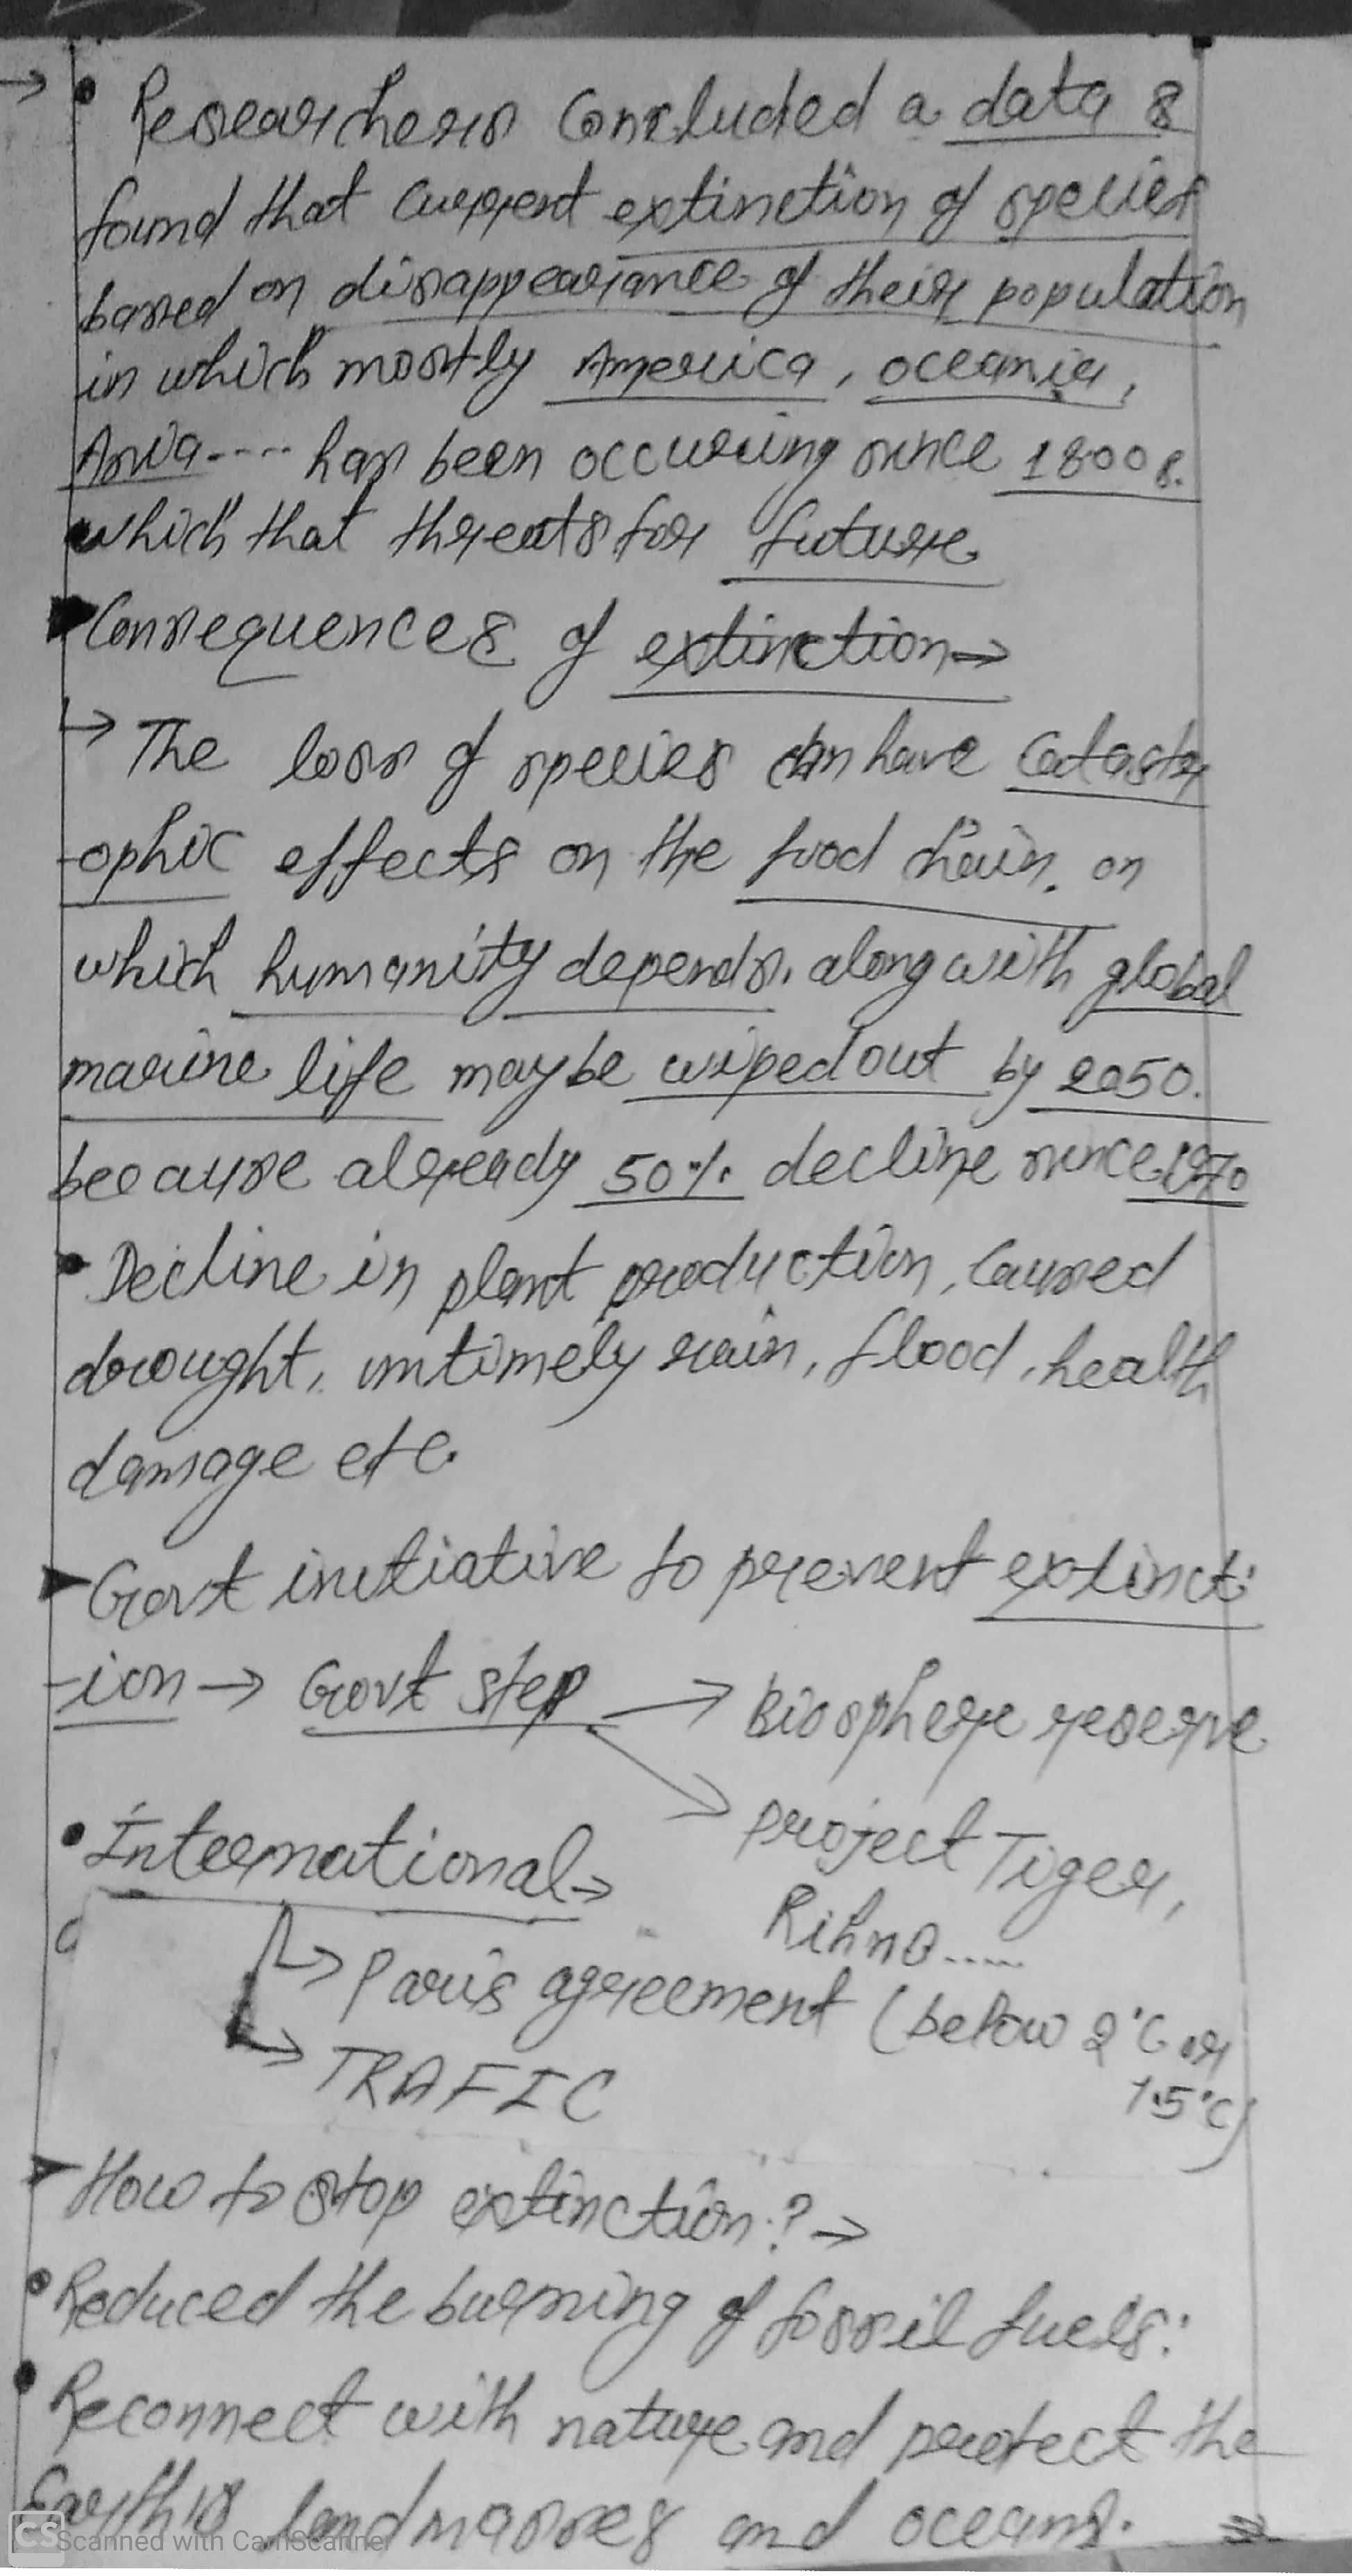 → • Researchers Concluded a data &
found that current extinction of species
based on disappearance of their population
in which mostly America, oceania,
Asia---- has been occuring since 1800s.
which that threats for future
Consequences of extinction→
→ The loss of species can have Catastr
-ophic effects on the food chain. on
which humanity depends. along with global
marine life may be wiped out by 2050.
because already 50% decline since 1970
• Decline in plant production, Caused
drought, untimely rain, flood, health
damage etc.
Govt initiative to prevent extinct-
-ion → Govt step → Biosphere reserve
→ project Tiger,
Rihno.....
• International→
→ Paris agreement (below 2°C or
1.5°C)
→ TRAFIC
How to stop extinction? →
• Reduced the burning of fossil fuels:
• Reconnect with nature and protect the
Earth's landmasses and oceans.
CS Scanned with CamScanner